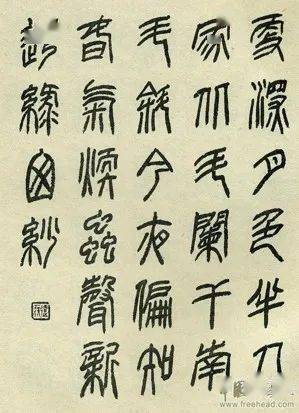 更深月色半人
家北斗闌干南
斗斜今夜偏知
春氣煖蟲聲新
透綠窗紗
www.freehead.com